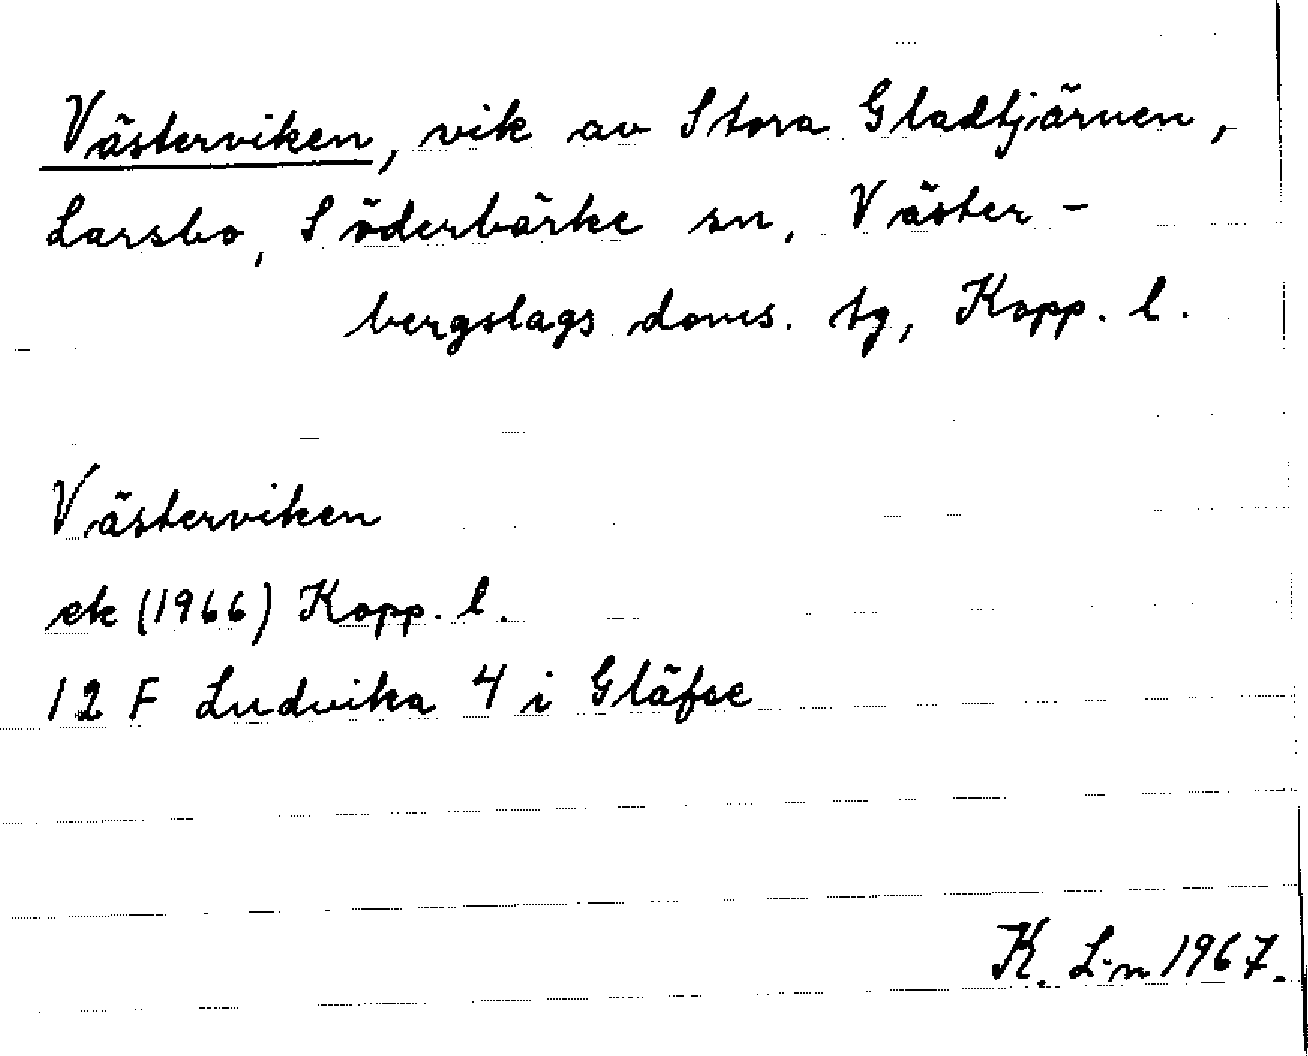 Västerviken, vik av Stora Gladtjärnen,
Larsbo, Söderbärke sn, Väster-
bergslags doms. tg, Kopp. l.
Västerviken
ek (1966) Kopp. l.
12 F Ludvika 4 i Gläfse
K. L-n 1967.